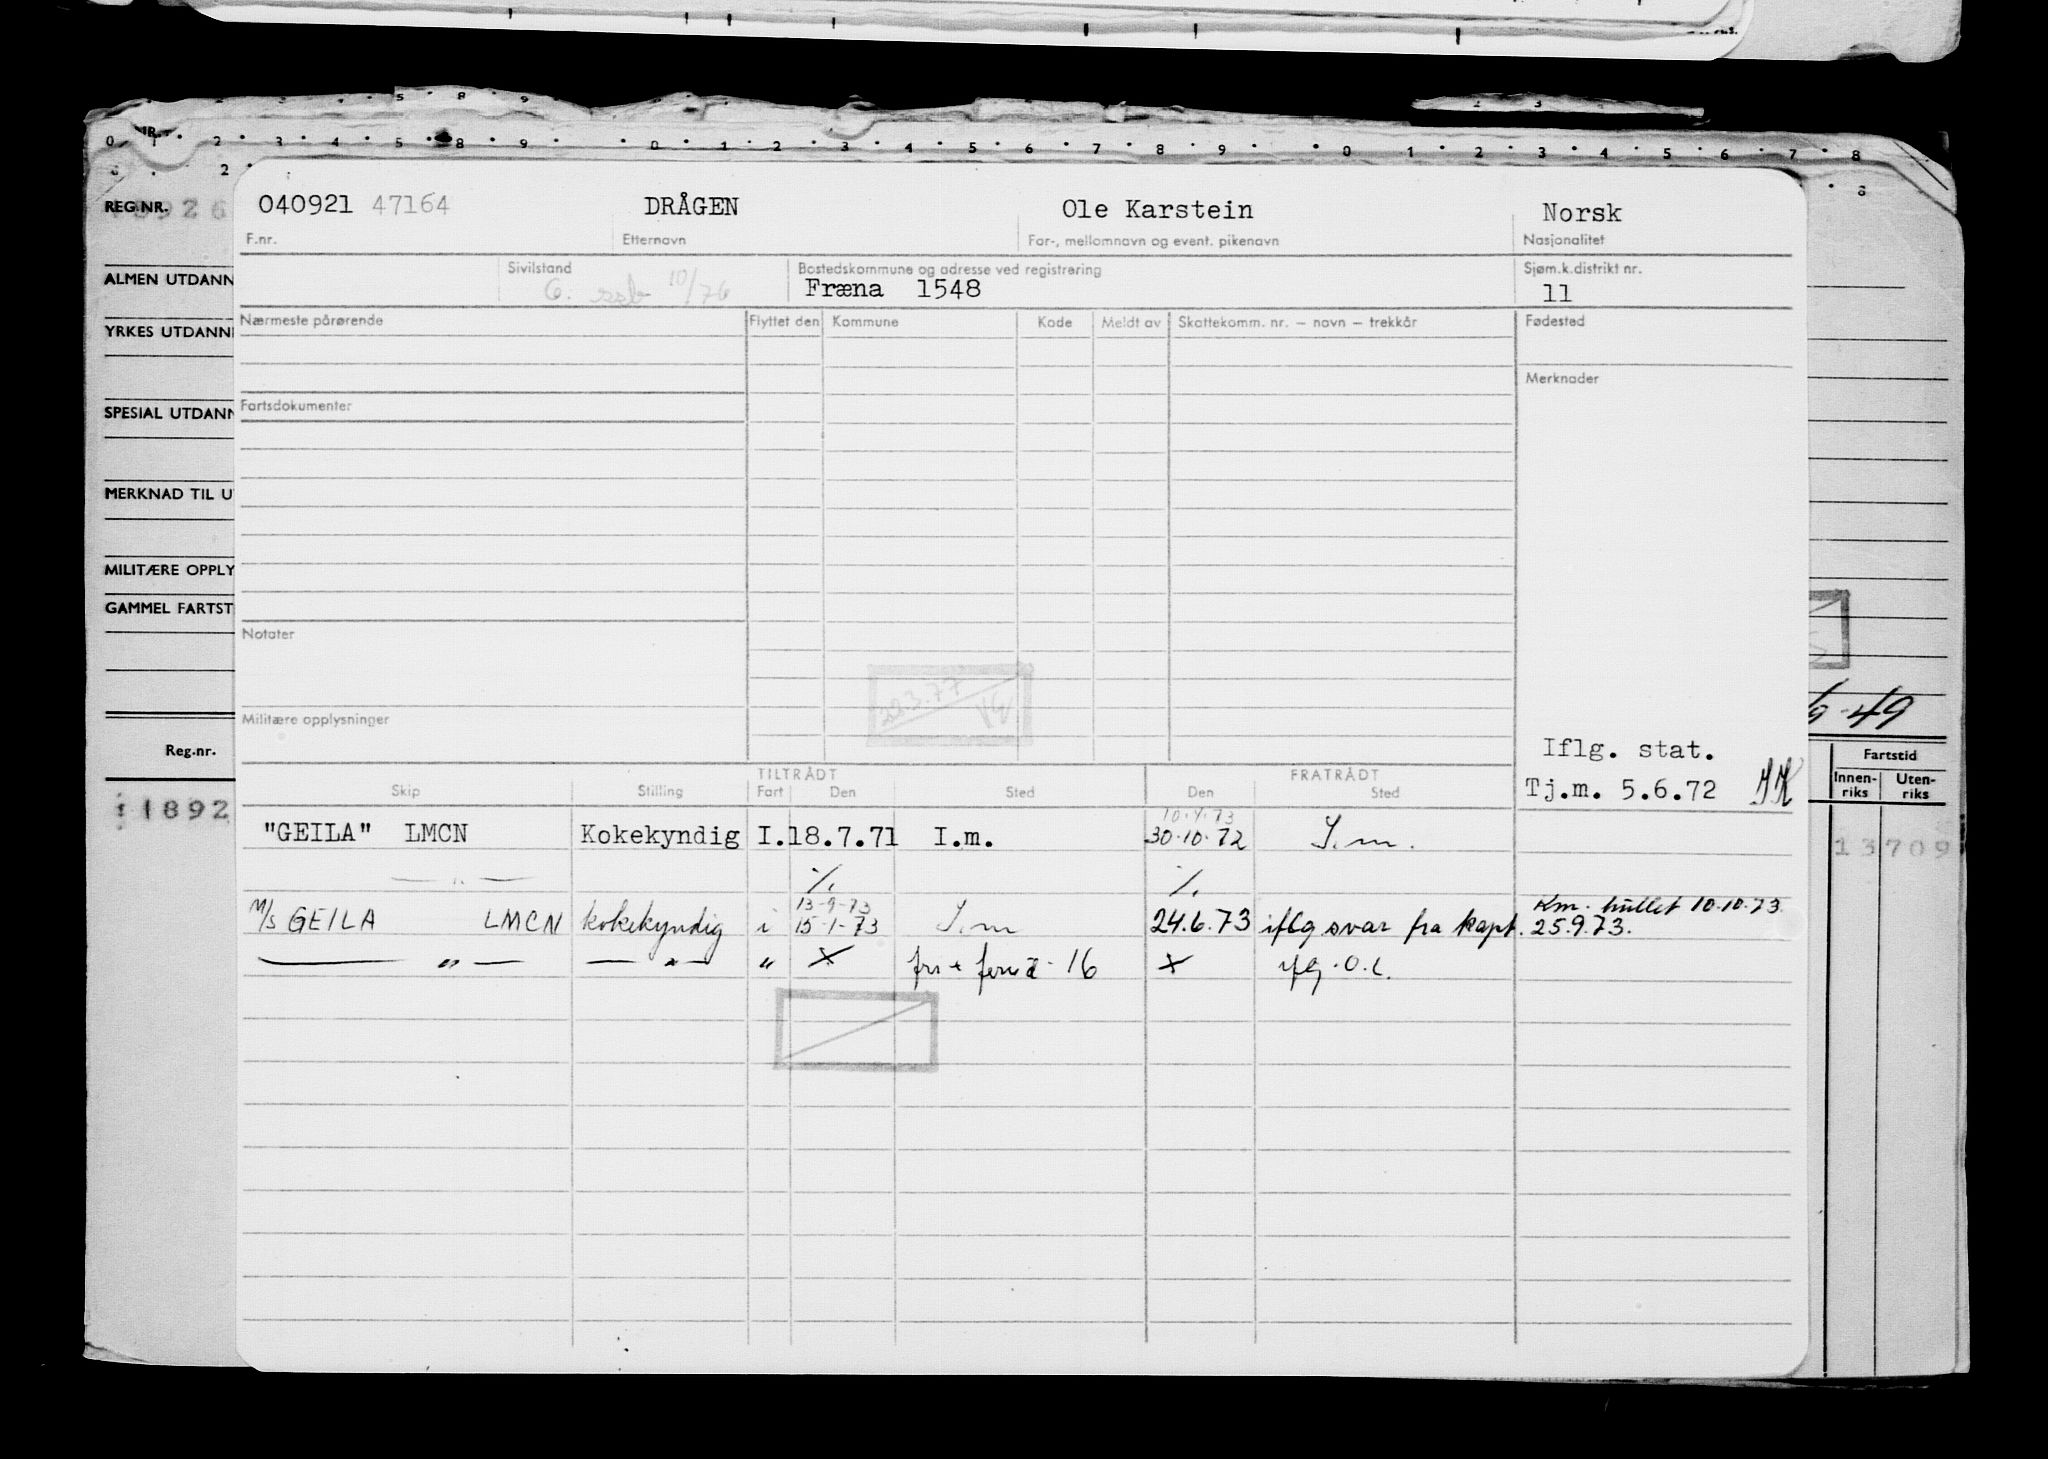 REG.NR.
ALMEN UTDANN
YRKES UTDANN
SPESIAL UTDANN
MERKNAD TIL U
MILITÆRE OPPLY
GAMMEL FARTST
Reg.nr.
1892
040921 47164 DRÅGEN Ole Karstein Norsk
F.nr. Etternavn For-, mellomnavn og event. pikenavn Nasjonalitet
Sivilstand Bostedskommune og adresse ved registrering Sjøm.k.distrikt nr.
10/76 Fræna 1548 11
Nærmeste pårørende Flyttet den Kommune Kode Meldt av Skattekomm. nr. – navn – trekkår Fødested
Merknader
Fartsdokumenter
Notater
22.3.77
Militære opplysninger
Iflg. stat.
Tj.m. 5.6.72 JK
TILTRÅDT FRATRÅDT
Skip Stilling Fart Den Sted Den Sted
10.4.73
"GEILA" LMCN Kokekyndig I. 18.7.71 I.m. 30.10.72 I.m.
— " — ./. ./.
13-9-73 Km. hullet 10.10.73
M/S GEILA LMCN kokekyndig i 15-1-73 I.m 24.6.73 iflg svar fra kapt. 25.9.73.
— " — — " — " X 16 X ifg. O.L.
-49
Fartstid
Innen-riks Uten-riks
13709